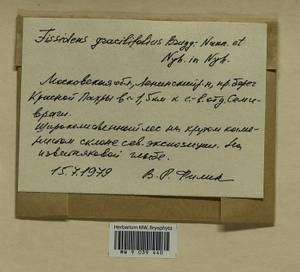 Fissidens gracilifolius Brugg.-Nann. et
Nyh. in Nyh.
Московская обл, Ленинский р-н, пр. берег
Красной Пахры в ~ 1,5 км к с.-в. от д. Семи-
враги.
Широколиственный лес на крутом каме-
нистом склоне сев. экспозиции. На
известняковой глыбе.
15.7.1979 В. Р. Филин
Herbarium MW, Bryophyta
MW 9 039 440